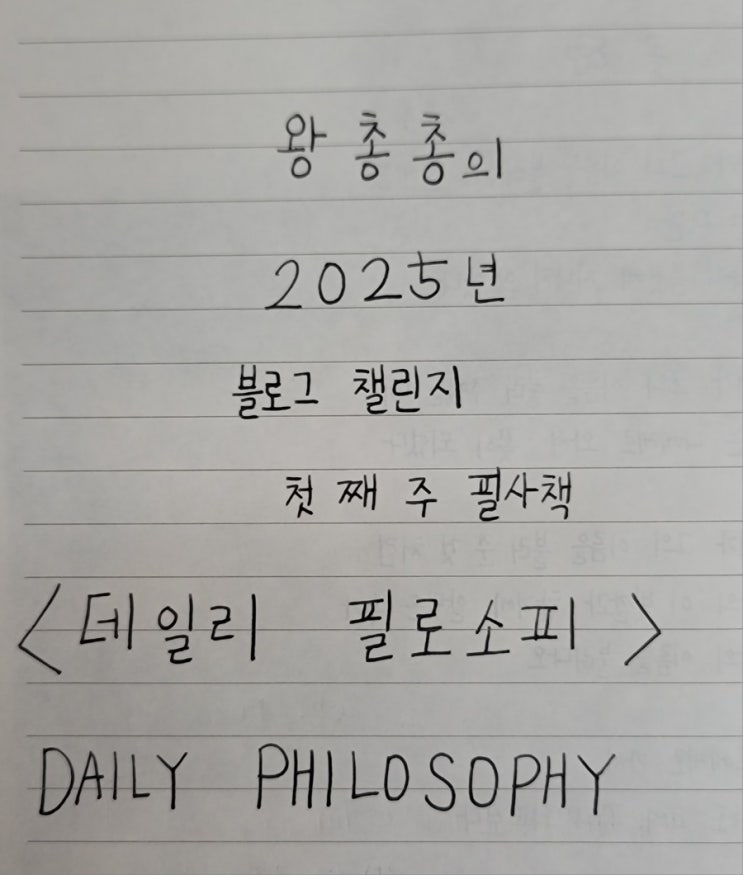 왕 총총의
2025년
블로그 챌린지
첫 째 주 필사책
<데일리 필로소피>
DAILY PHILOSOPHY